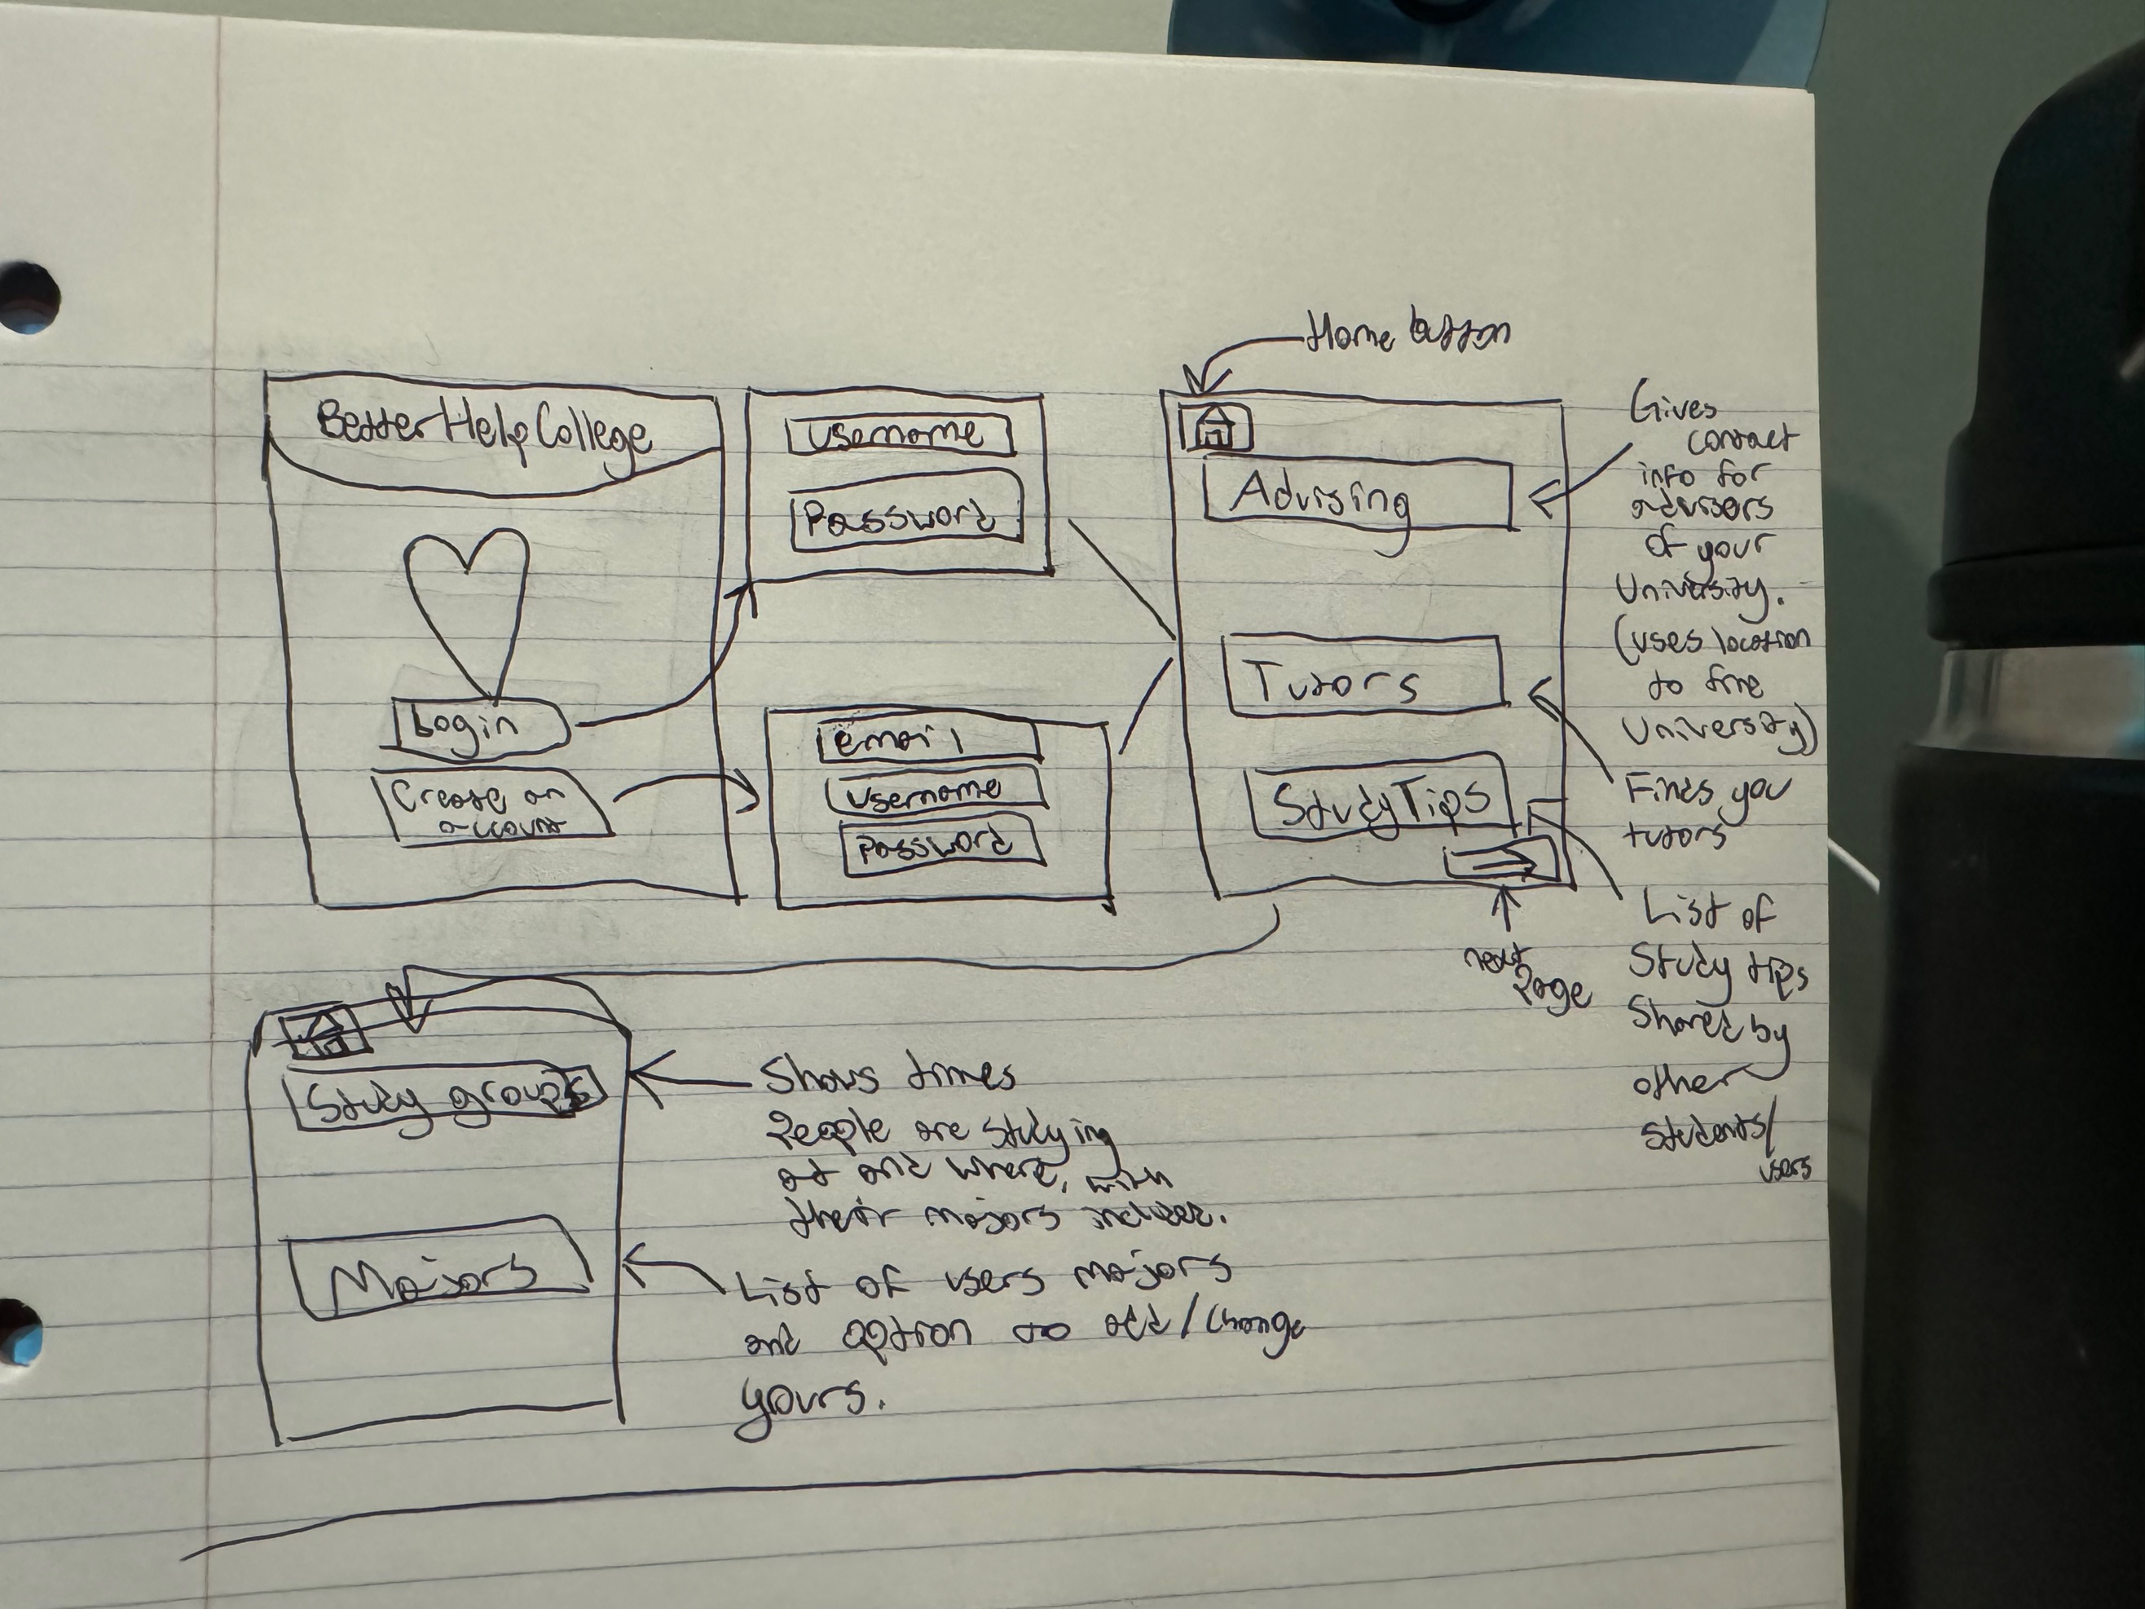 Home button
BetterHelpCollege
Login
Create an
account
Username
Password
email
Username
Password
Advising
Tutors
StudyTips
next
Page
Gives
contact
info for
advisors
of your
University.
(uses location
to find
University)
Finds you
tutors
List of
Study tips
Shared by
other
students/
users
Study groups
Majors
Shows times
People are studying
at and where, with
their majors included.
List of users majors
and option to add/change
yours.